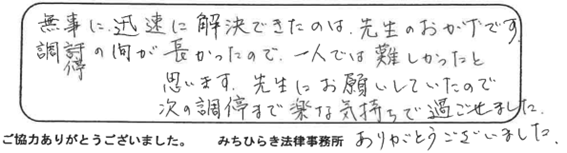 無事に、迅速に解決できたのは、先生のおかげです。
調停の間が長かったので、一人では難しかったと
思います。先生にお願いしていたので
次の調停まで楽な気持ちで過ごせました。
ご協力ありがとうございました。 みちひらき法律事務所 ありがとうございました。